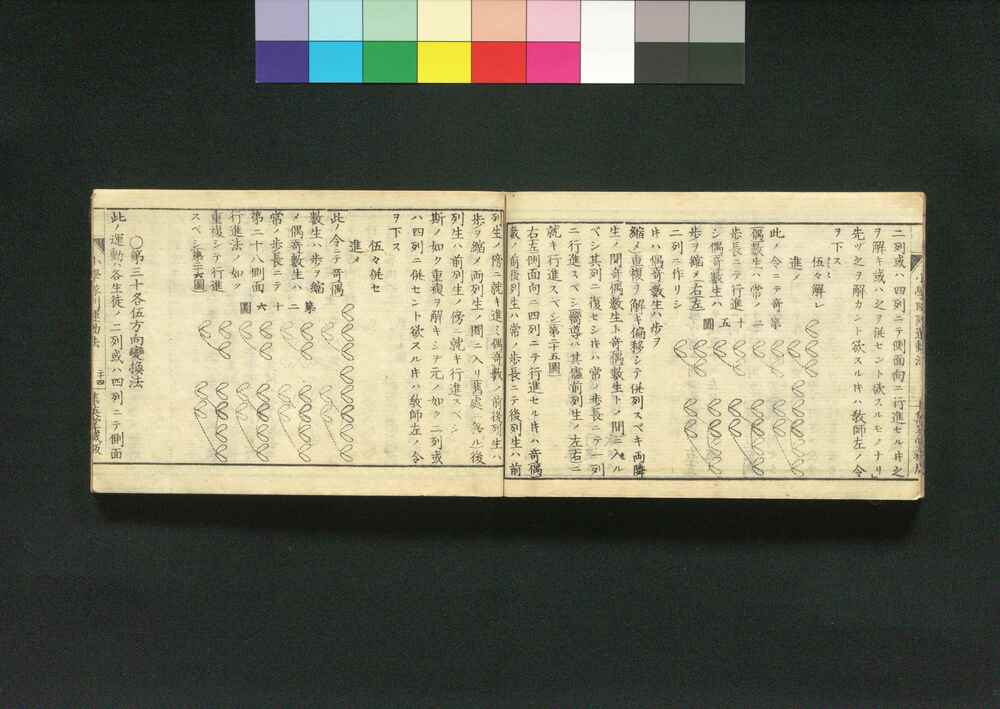 二列或ハ四列ニテ側面向ニ行進セルヰ之
ヲ解キ或ハ之ヲ併セント欲スルモノナリ
先ヅ之ヲ解カント欲スルヰハ敎師左ノ令
ヲ下ス
伍々解レ
進メ
此ノ令ニテ奇
偶數生ハ常ノ
歩長ニテ行進
シ偶奇數生ハ
歩ヲ縮メ右左
二列ニ作リシ
第二十五圖
ヰハ偶奇數生ハ歩ヲ
縮メ重複ヲ解キ偏移シテ併列スベキ両隣
生ノ間奇偶數生ト奇偶數生トノ間ニ入ル
ベシ其列ニ復セシヰハ常ノ歩長ニテ一列
ニ行進スベシ嚮導ハ其儘前列生ノ左右ニ
就キ行進スベシ第二十五圖
右左側面向ニ四列ニテ行進セルヰハ奇偶
數ノ前後列生ハ常ノ歩長ニテ後列生ハ前
列生ノ傍ニ就キ進ミ偶奇數ノ前後列生ハ
歩ヲ縮メ両列生ノ間ニ入リ舊處ニ復ル後
列生ハ前列生ノ傍ニ就キ行進スベシ
斯ノ如ク重複ヲ解キシヲ元ノ如ク二列或
ハ四列ニ併セント欲スルヰハ敎師左ノ令
ヲ下ス
伍々併セ
進メ
此ノ令ニテ奇偶
數生ハ歩ヲ縮
メ偶奇數生ハ
常ノ歩長ニテ
第二十八側面
行進法ノ如ク
重複シテ行進
スベシ第二十六圖
第二十六圖
〇第三十各伍方向變換法
此ノ運動ハ各生徒ノ二列或ハ四列ニテ側面